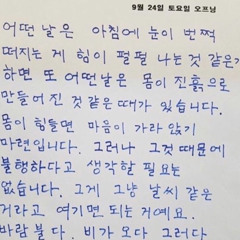 9월 24일 토요일 오프닝
어떤 날은 아침에 눈이 번쩍
떠지는 게 힘이 펄펄 나는 것 같은가
하면 또 어떤날은 몸이 진흙으로
만들어 진 것 같은 때가 있습니다.
몸이 힘들면 마음이 가라 앉기
마련입니다. 그러나 그것 때문에
불행하다고 생각할 필요는
없습니다. 그게 그냥 날씨 같은
거라고 여기면 되는 거예요.
바람 불다. 비가 오다 그러다